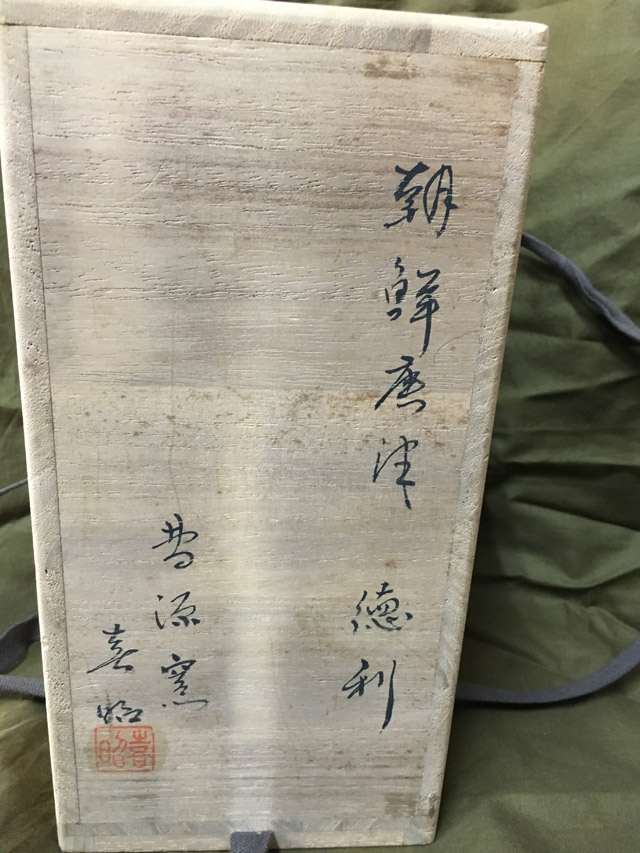 朝鮮唐津 徳利
曹源窯
喜昭
喜昭